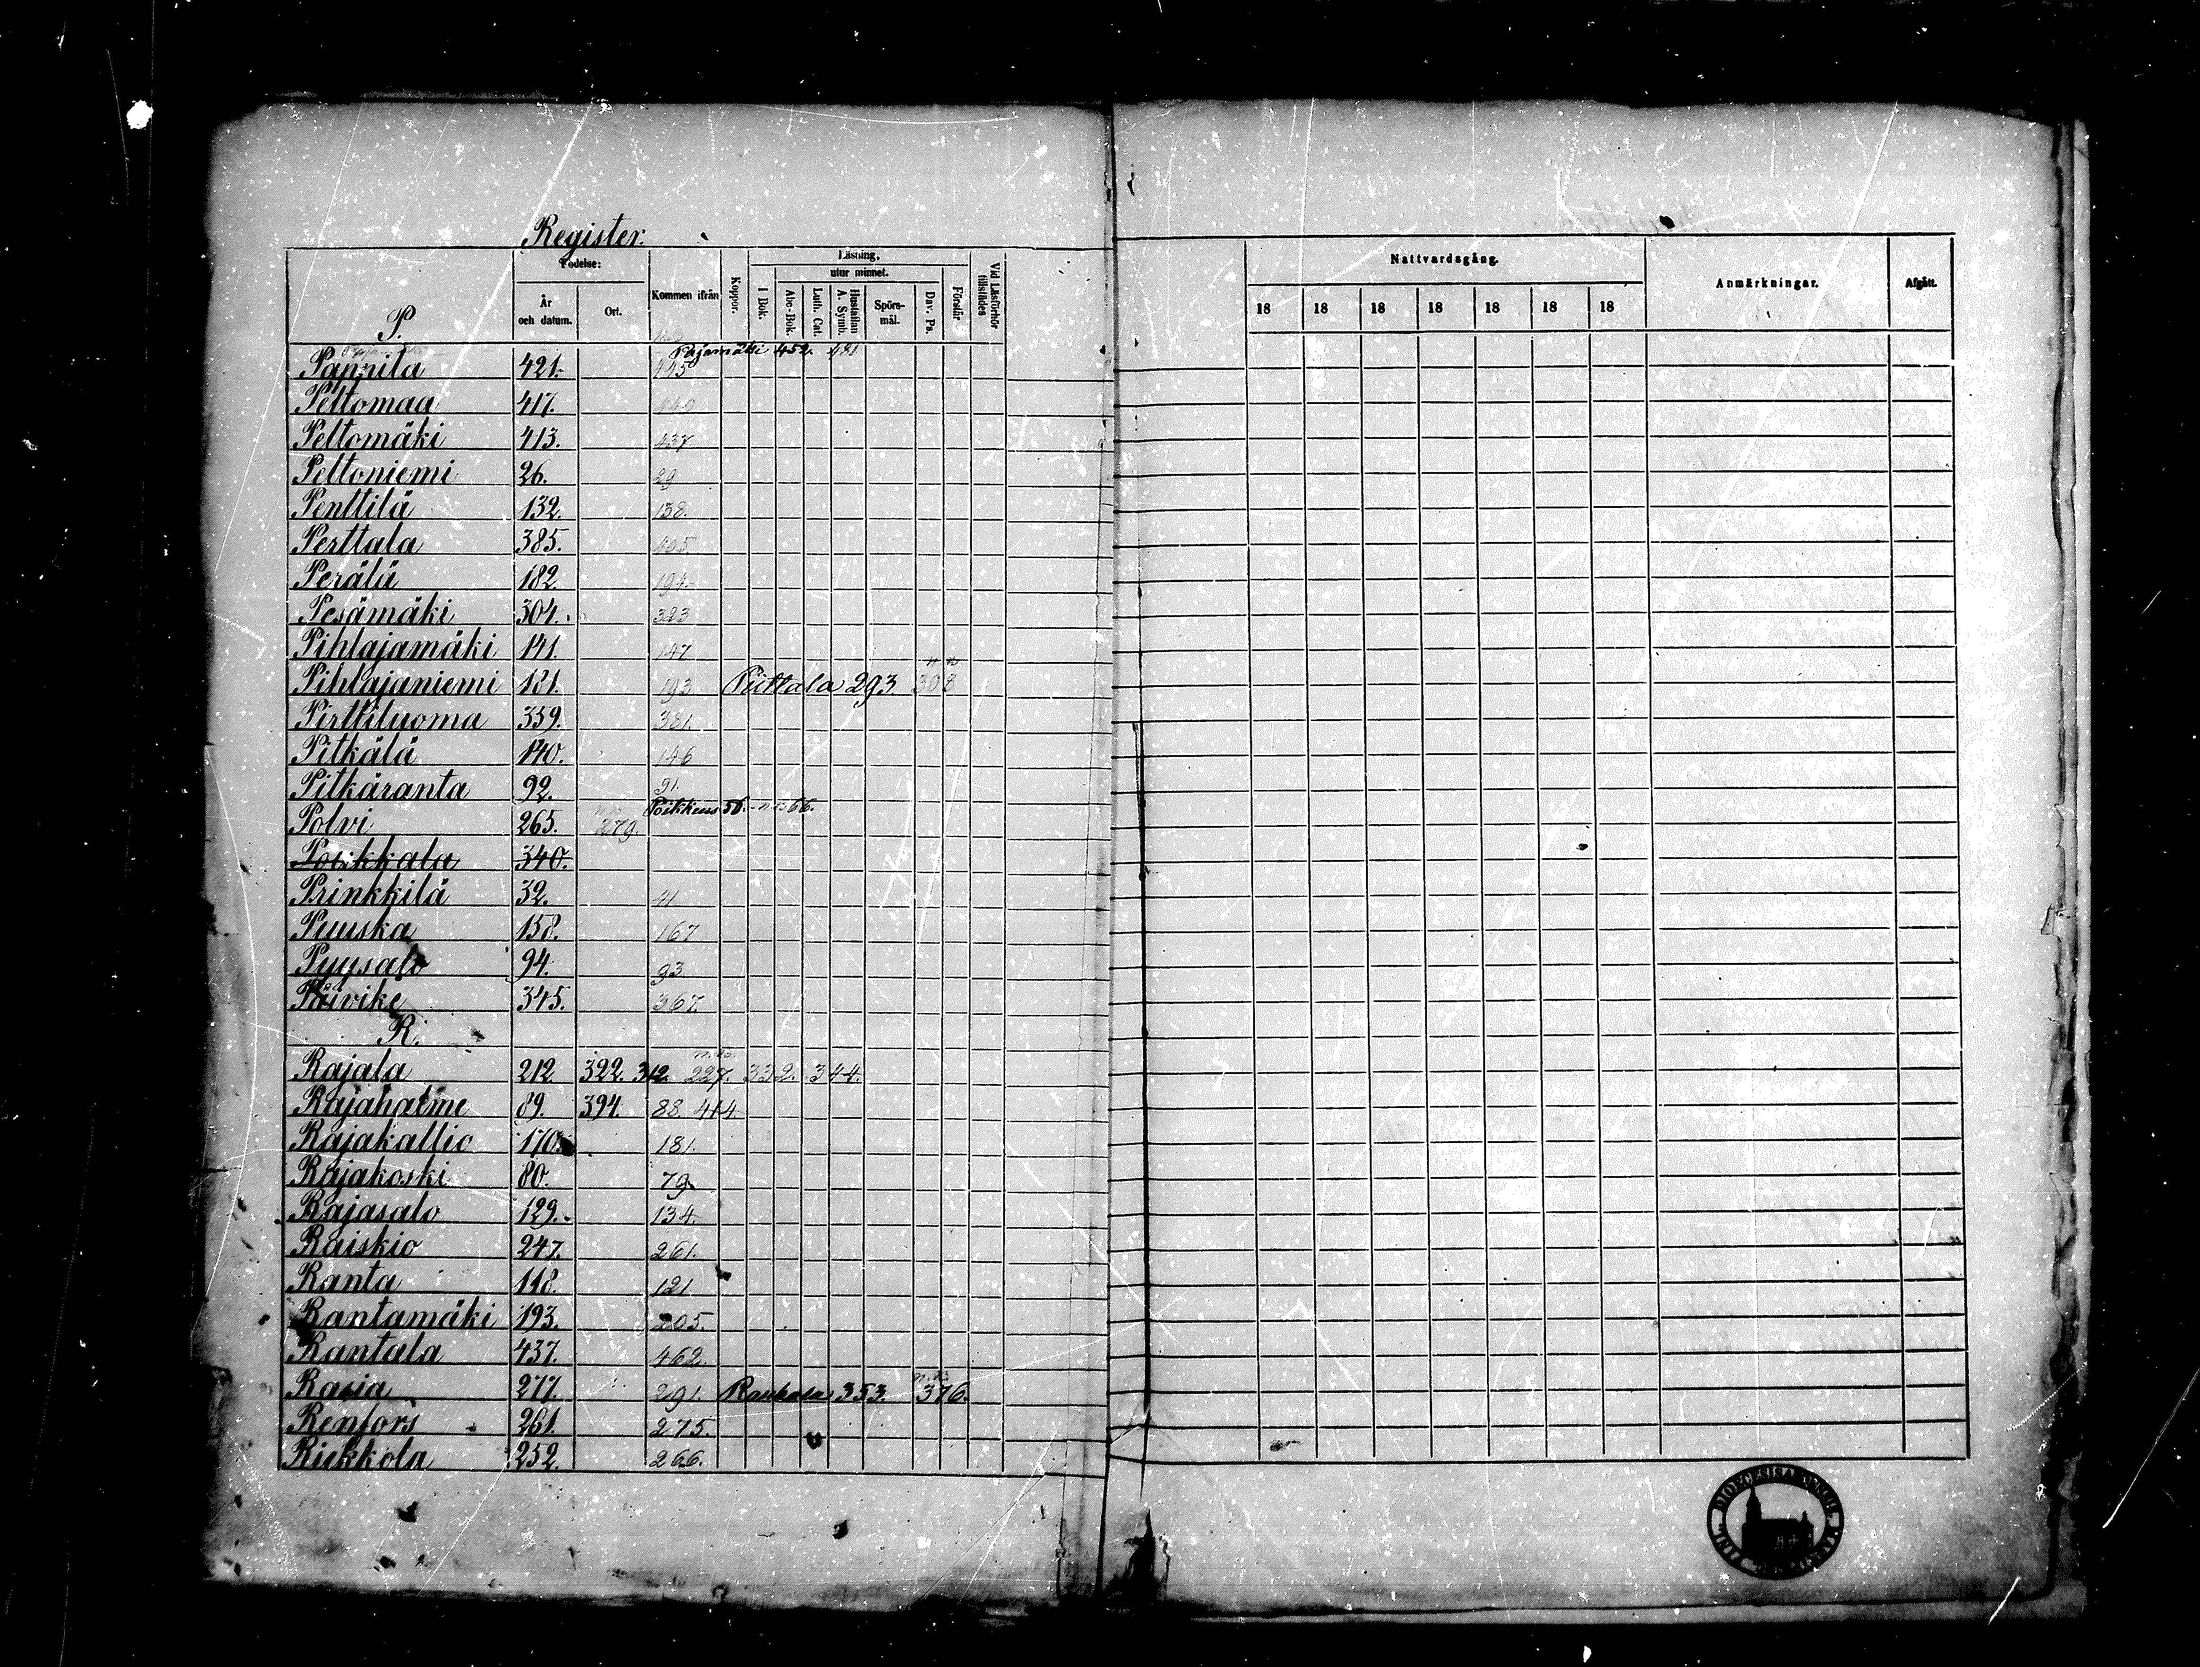 Register.
P.
Födelse:
År och datum.
Ort.
Kommen ifrån
Koppor.
Läsning,
utur minnet.
I Bok.
Abc-Bok.
Luth. Cat.
Hustaflan A. Symb.
Spörs-mål.
Dav. Ps.
Förstår
Vid Läsförhör tillstädes
Nattvardsgång.
18 18 18 18 18 18 18
Anmärkningar.
Afgått.
Pajamäki 452. 481
Pannila 421. 445
Peltomaa 417.
Peltomäki 413. 437
Peltoniemi 26. 29
Penttilä 132. 138.
Perttala 385. 405
Perälä 182 194
Pesämäki 304. 323
Pihlajamäki 141. 147
Pihlajaniemi 181. 193 Piittala 293 308
Pirttiluoma 359. 381.
Pitkälä 140. 146
Pitkäranta 92. 91.
Poikkeus 56. 66.
Polvi 265. 279.
Poikkala 340.
Prinkkilä 32. 41
Puuska 158. 167
Pyysalo 94. 93
Päivike 345. 367.
R.
Rajala 212. 322. 312. 227. 332. 344.
Rajahalme 89. 394. 88 414
Rajakallio 170. 181.
Rajakoski 80. 79
Rajasalo 129. 134.
Raiskio 247. 261.
Ranta 118. 121
Rantamäki 193. 205.
Rantala 437. 462.
Rasia 277. 291. Rauhala 353. 376.
Renfors 261. 275.
Riekkola 252. 266.